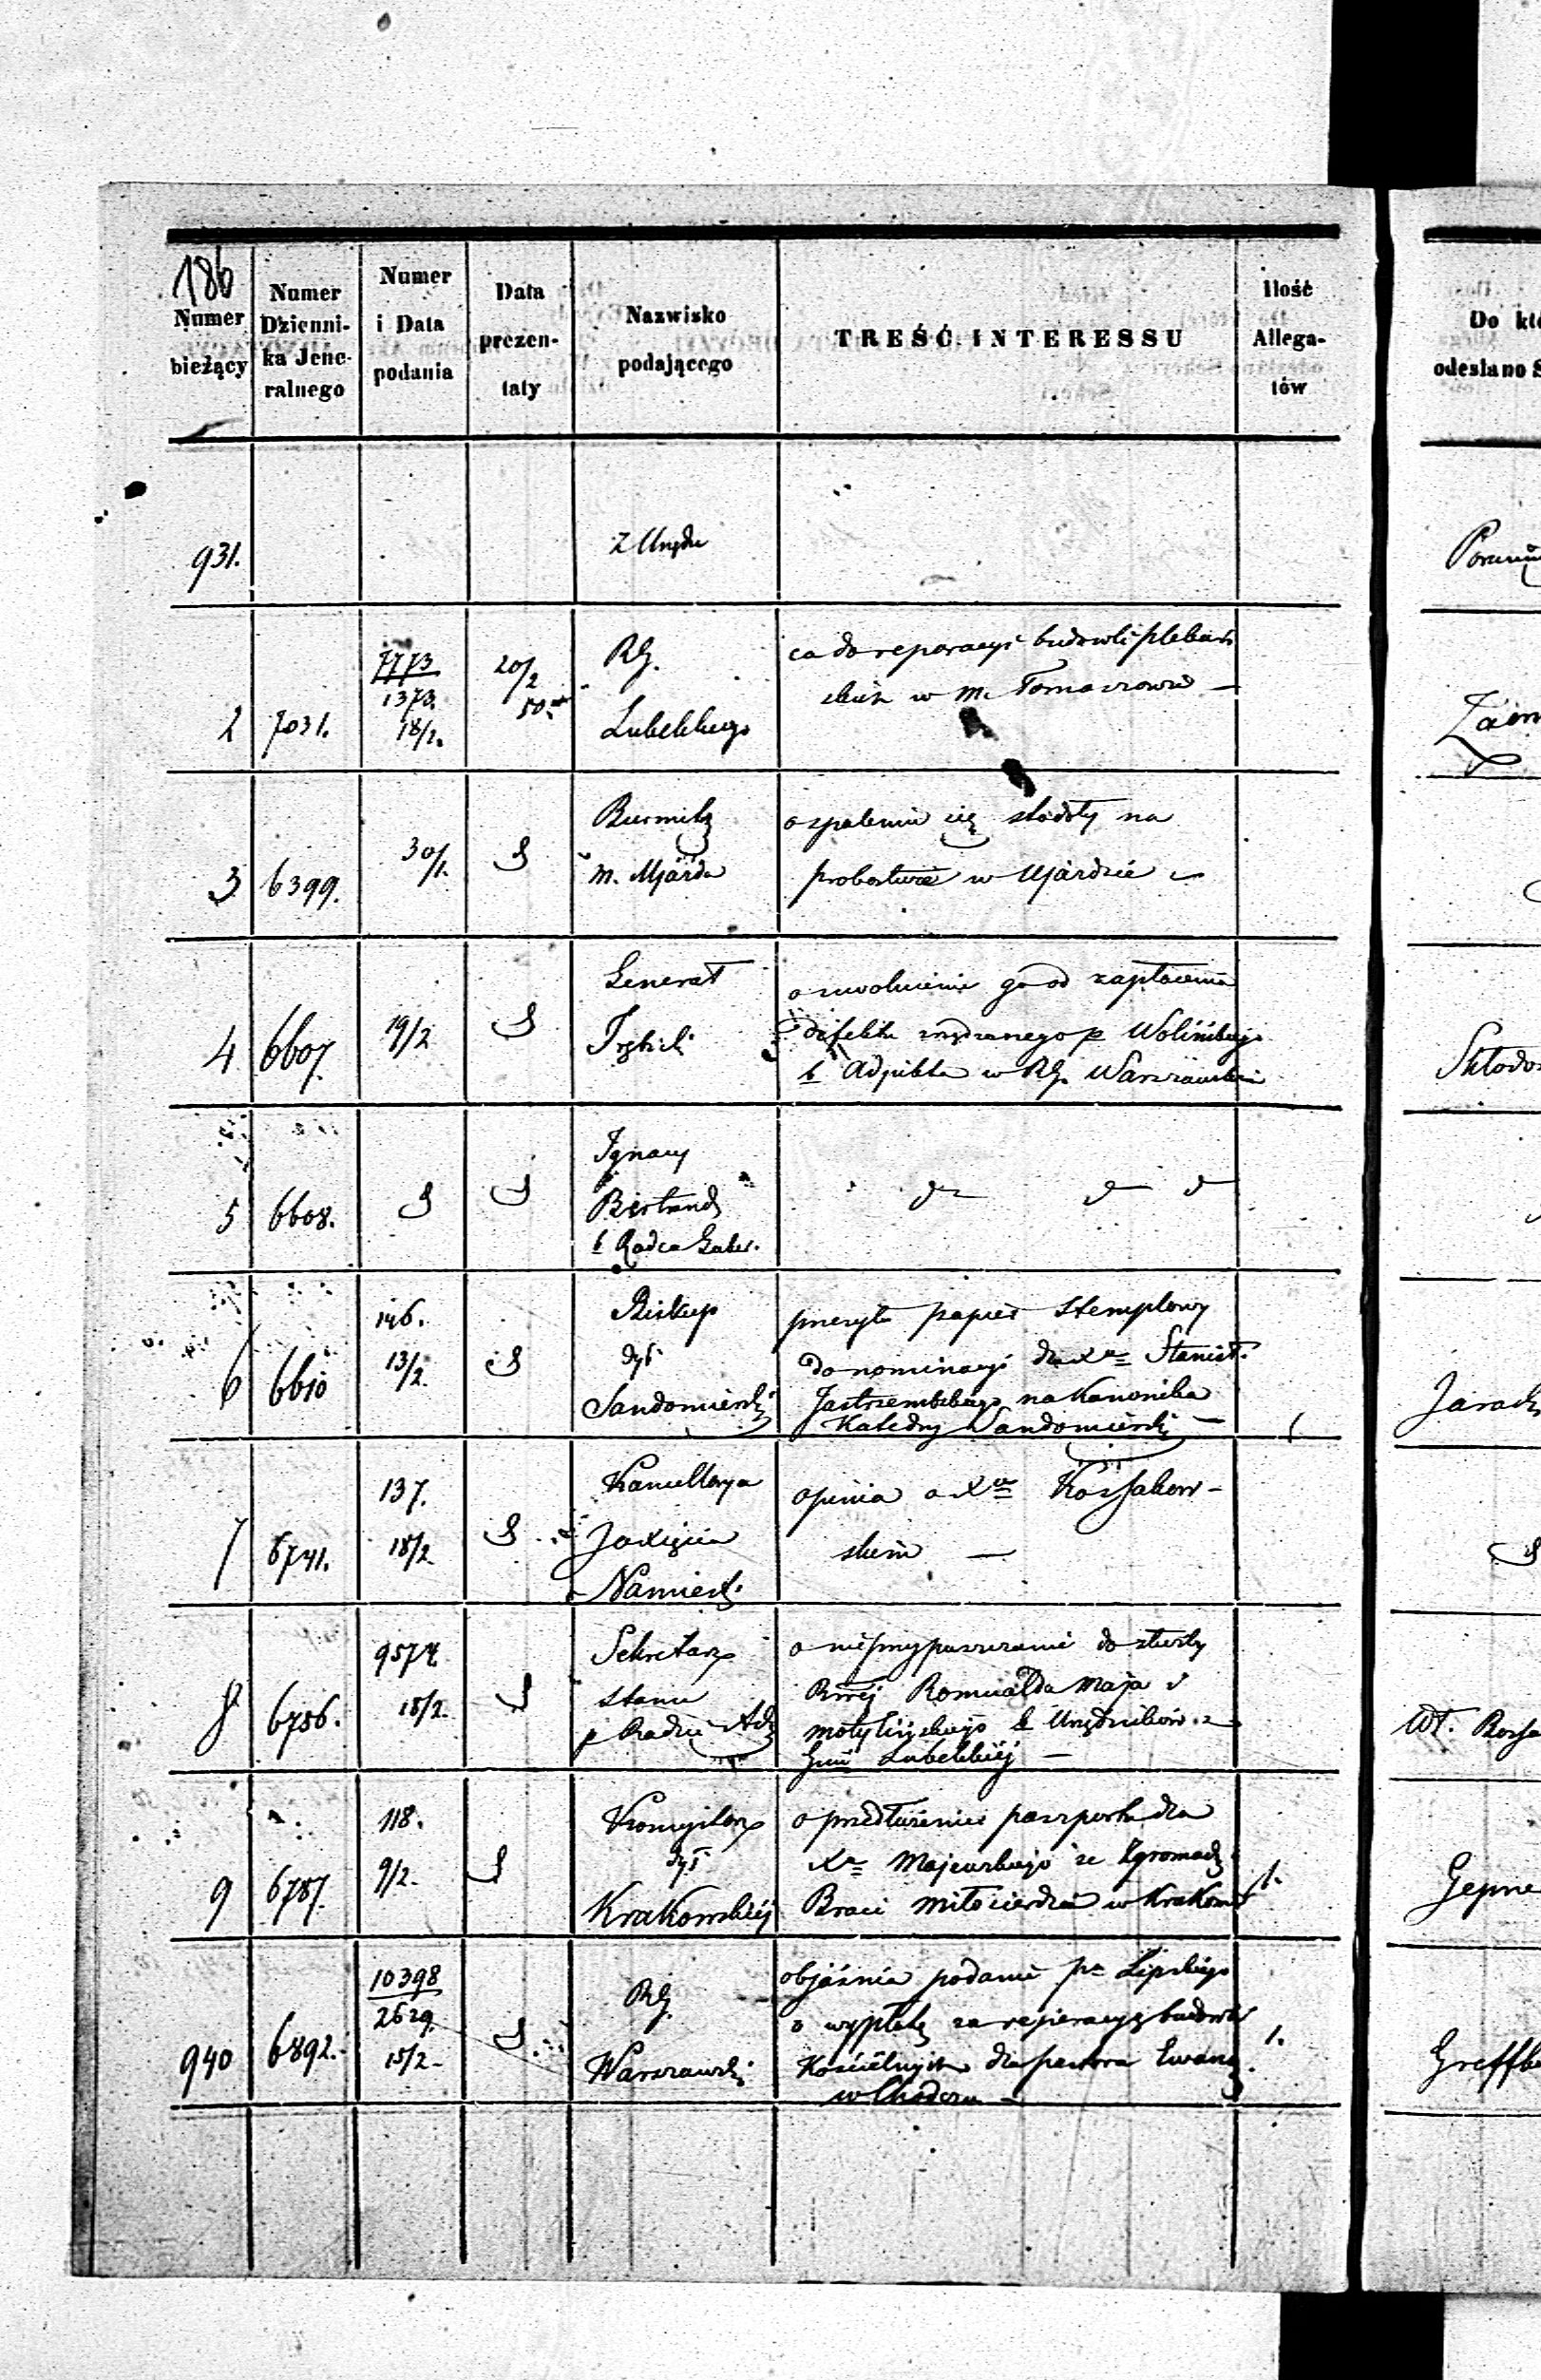 186
Numer bieżący
Numer Dzienni-ka Jene-ralnego
Numer i Data podania
Data prezen-taty
Nazwisko podającego
TREŚĆ INTERESSU
Ilość Allega-tów
Do
odesłano
931.
Z Urzędu
2
7031.
7773
1373.
18/2.
20/2
50
RG.
Lubelskiego
co do reparacyi budowli plebań
skich w m. Tomaszowie —
3
6399.
30/1.
Burmistrz
m. Ujazda
o spaleniu się stodoły na
probostwie w Ujazdzie
4
6607.
19/2
Generał
o uwolnienie go od zapłacenia
defektu zrządzonego p Wolińskiego
b Adjunkta w RG. Warszawskim
Skłodo
5
6608.
Ignacy
b Radca Guber.
6
6610
146.
13/2.
Biskup
dyi
Sandomierski
przesyła papier stemplowy
do nominacyi dla Xa Stanisł.
Jastrzembskiego na Kanonika
Katedry Sandomierski —
1
7
6741.
137.
18/2
Kancellarya
JO Xięcia
Namiest.
opinia o Xu Kossakow-
skim —
8
6756.
9574
18/2.
Sekretarz
Stanu
p Radzie Adm
o nieprzypuszczanie do służby
Romualda Maja i
Motylińskiego b Urzędników z
Gub Lubelskiej —
Wł.
9
6787.
118.
9/2.
dyi
Krakowskiej
o przedłużenie paszportu dla
Xa Majewskiego ze Zgromadz
Braci Miłosierdzia w Krakowie
1.
Gepne
940
6892.
10398
2629.
15/2
RG.
Warszawski
objaśnia podanie pa Lipskiego
o wypłatę za reparacyę budowli
Kościelnych dla pastora Ewang.
w Chodczu —
1.